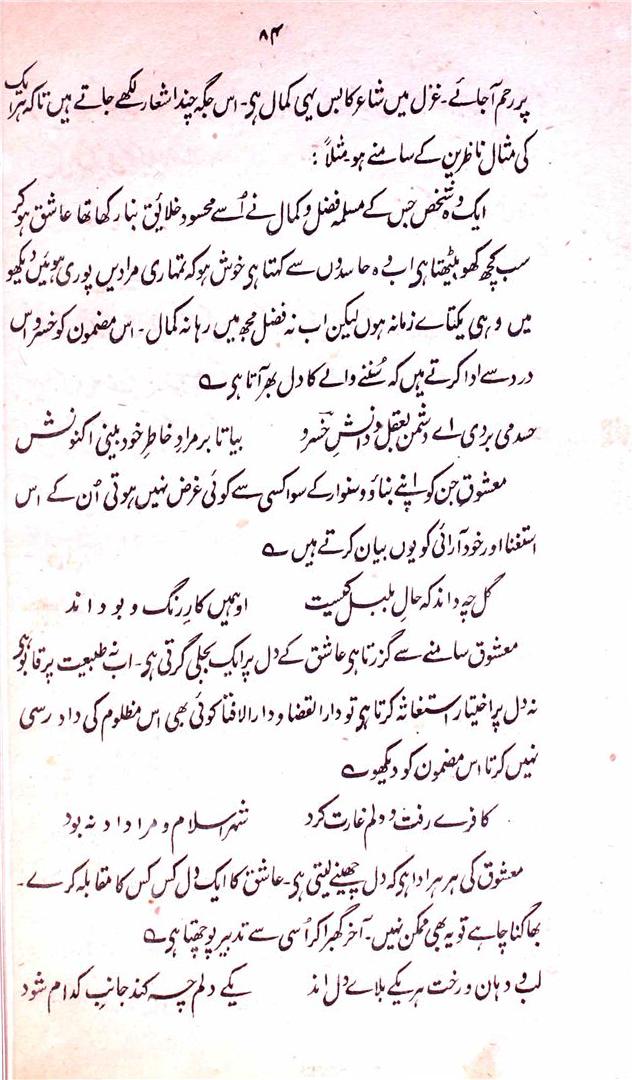 ۸۴
پر رحم آجائے۔ غزل میں شاعر کا بس یہی کمال ہی۔ اس جگہ چند اشعار لکھے جاتے ہیں تاکہ ہر ایک
کی مثال ناظرین کے سامنے ہو مثلاً:
ایک وہ شخص جس کے مسلمہ فضل و کمال نے اُسے محسود خلائق بنا رکھا تھا عاشق ہو کر
سب کچھ کھو بیٹھتا ہی اب وہ حاسدوں سے کہتا ہی خوش ہو کہ تمہاری مرادیں پوری ہوئیں دیکھو
میں وہی یکتاے زمانہ ہوں لیکن اب نہ فضل مجھ میں رہا نہ کمال۔ اس مضمون کو خسرو اس
درد سے ادا کرتے ہیں کہ سُننے والے کا دل بھر آتا ہی ؎
حسد می بردی اے دشمن بعقل و دانشِ خسرو بیا تا بر مرادِ خاطرِ خود بینی اکنونش
معشوق جن کو اپنے بناؤ و سنوار کے سوا کسی سے کوئی غرض نہیں ہوتی اُن کے اس
استغنا اور خود آرائی کو یوں بیان کرتے ہیں ؎
گل چہ داند کہ حالِ بلبل چیست او ہمیں کارِ رنگ و بو داند
معشوق سامنے سے گزرتا ہی عاشق کے دل پر ایک بجلی گرتی ہی۔ اب نہ طبیعت پر قابو ہی
نہ دل پر اختیار استغاثہ کرتا ہی تو دار القضا و دار الافتا کوئی بھی اس مظلوم کی داد رسی
نہیں کرتا اس مضمون کو دیکھو ؎
کافرے رفت و دلم غارت کرد شہرِ اسلام و مرا داد نہ بود
معشوق کی ہر ہر ادا ہی کہ دل چھینے لیتی ہی۔ عاشق کا ایک دل کس کس کا مقابلہ کرے۔
بھاگنا چاہے تو یہ بھی ممکن نہیں۔ آخر گھبرا کر اُسی سے تدبیر پوچھتا ہی ؎
لب و دہان و رخت ہر یکے بلاے دل اند یکے دلم چہ کند جانبِ کدام شود